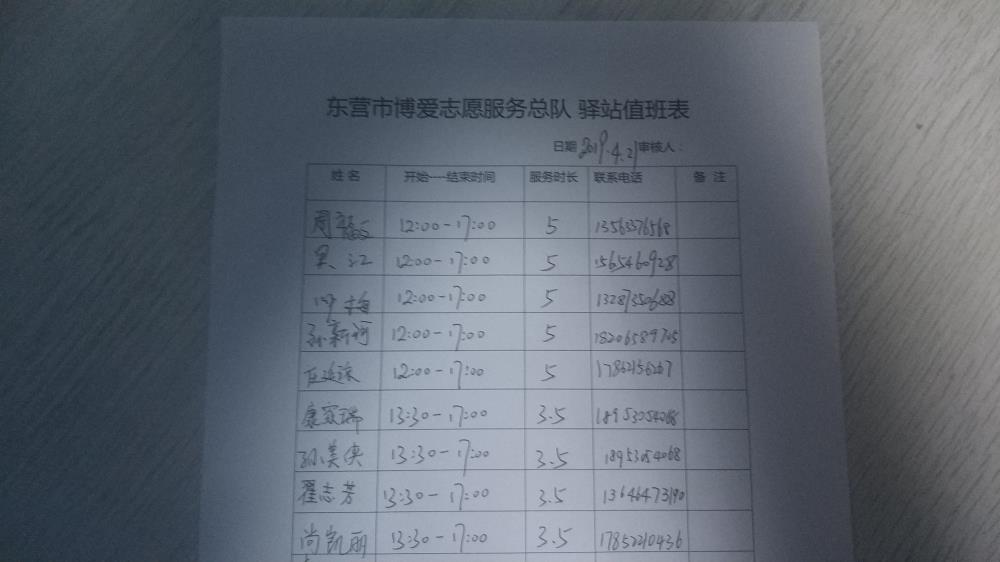 东营市博爱志愿服务总队 驿站值班表
日期 2019.4.21 审核人：
姓名 开始----结束时间 服务时长 联系电话 备 注
周 12:00-17:00 5 13563376568
江 12:00-17:00 5 1565460928
梅 12:00-17:00 5 13287350688
孙新河 12:00-17:00 5 18206589705
12:00-17:00 5 17862156267
康家瑞 13:30-17:00 3.5 18953054068
孙美侠 13:30-17:00 3.5 18953054068
翟志芳 13:30-17:00 3.5 13646473190
尚凯丽 13:30-17:00 3.5 17852210436